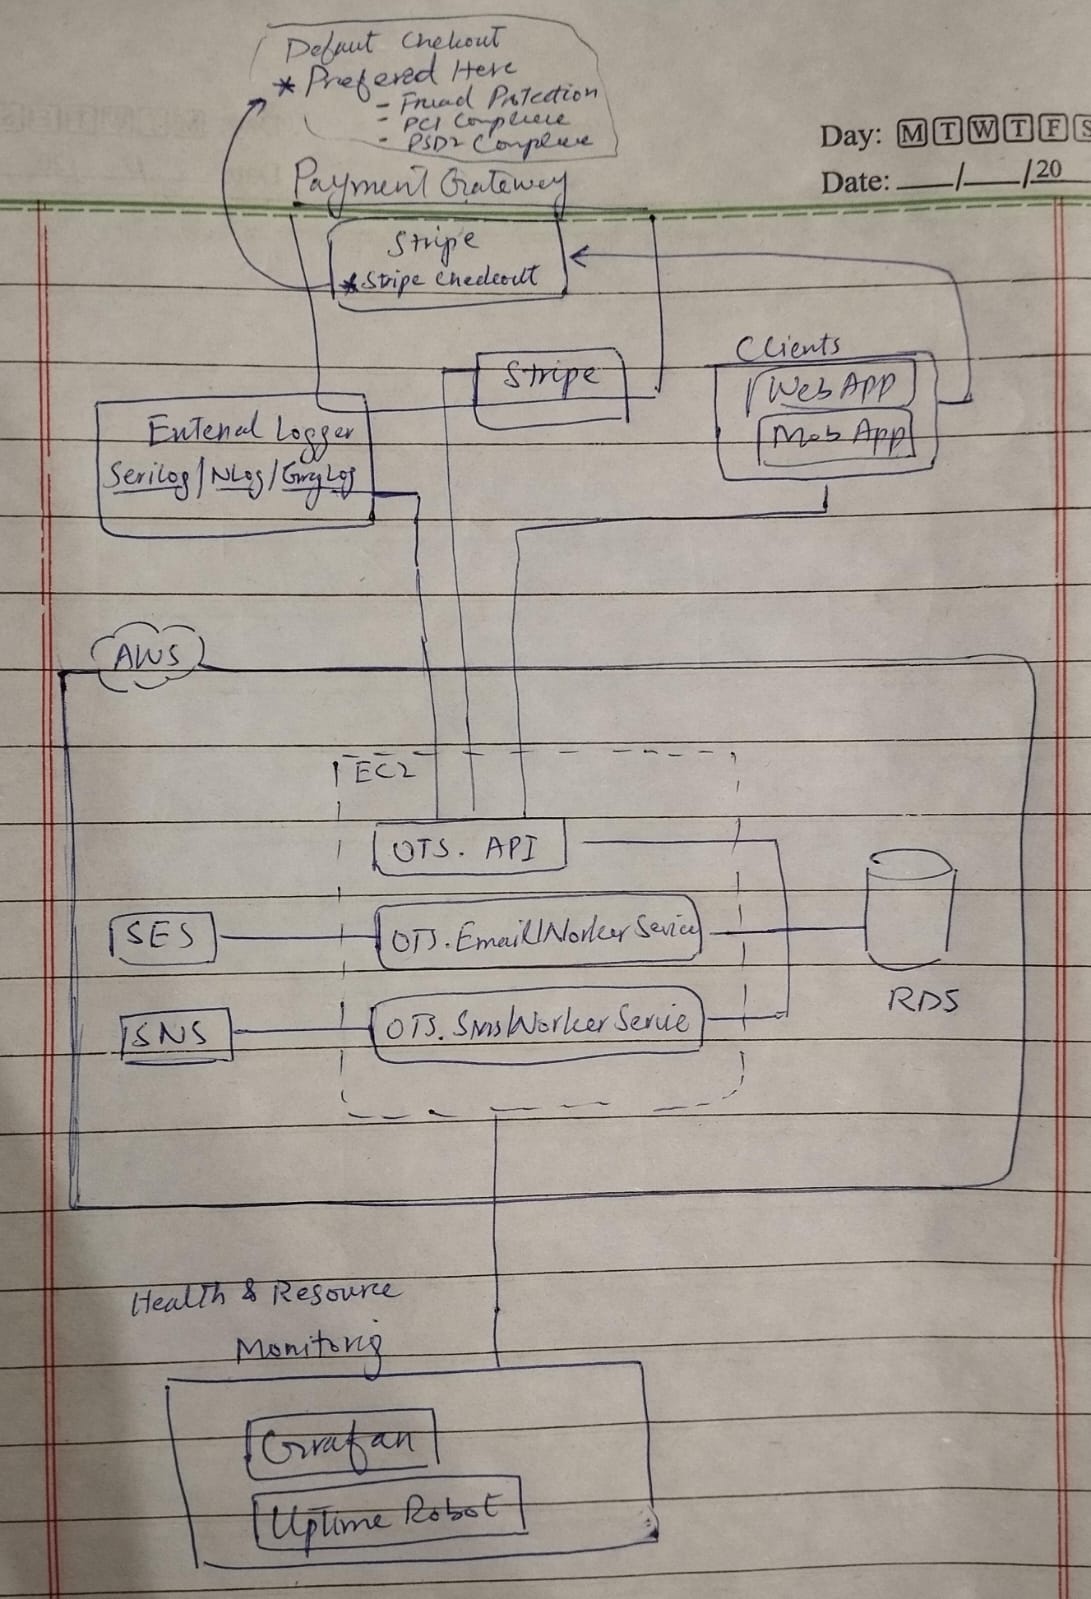 Defaut Chekout
* Prefered Here
- Fruad Protection
- PCI Compliece
- PSD2 Compliece
Day: M T W T F S
Date: ___/___/20
Payment Gateway
Stripe
* Stripe Checkout
Clients
Web App
Mob App
Stripe
Extenal Logger
Serilog/NLog/GrayLog
AWS
EC2
OTS. API
SES
OTS.EmailWorkerSevice
SNS
OTS.SmsWorkerServie
RDS
Health & Resource
Monitorig
Grafan
Uptime Robot